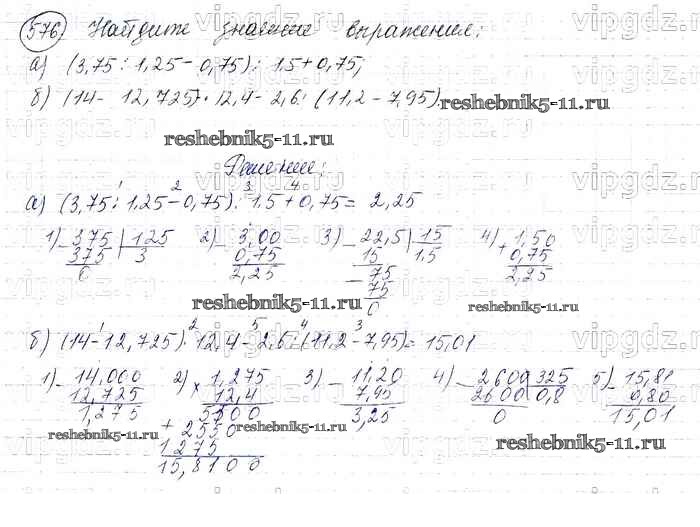 576) Найдите значение выражения:
а) (3,75 : 1,25 - 0,75) : 1,5 + 0,75;
б) (14 - 12,725) · 12,4 - 2,6 : (11,2 - 7,95).
reshebnik5-11.ru
reshebnik5-11.ru
Решение:
1 2 3 4
а) (3,75 : 1,25 - 0,75) : 1,5 + 0,75 = 2,25
1) - 375 | 125 2) - 3,00 3) - 22,5 | 15 4) + 1,50
375 3 0,75 15 1,5 0,75
0 2,25 - 75 2,25
75
0
reshebnik5-11.ru reshebnik5-11.ru
1 2 5 4 3
б) (14 - 12,725) · 12,4 - 2,6 : (11,2 - 7,95) = 15,01
1) - 14,000 2) × 1,275 3) - 11,20 4) - 2600 | 325 5) - 15,81
12,725 12,4 7,95 2600 0,8 0,80
1,275 5100 3,25 0 15,01
+ 2550
1275
15,8100
reshebnik5-11.ru reshebnik5-11.ru reshebnik5-11.ru
vipgdz.ru vipgdz.ru vipgdz.ru